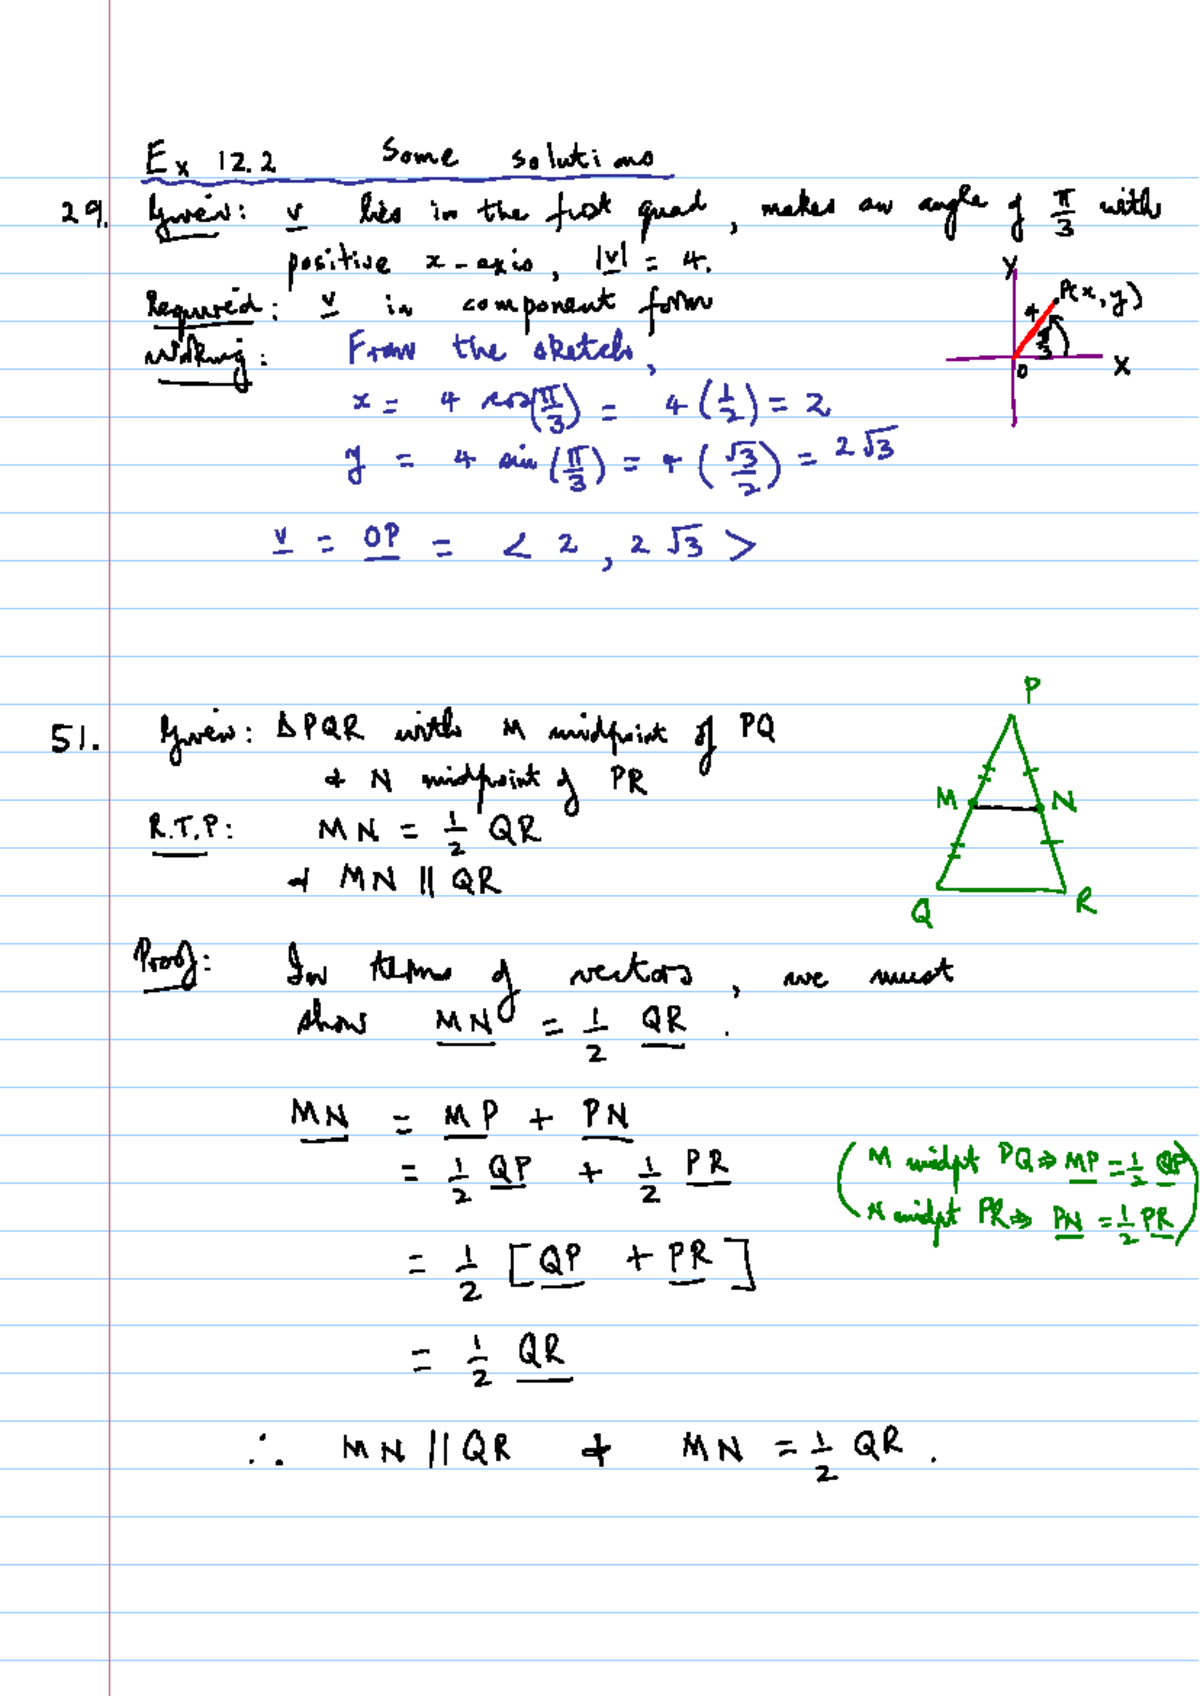 Ex 12.2 Some solutions
29. Given: v lies in the first quad, makes an angle of π/3 with
positive x-axis, |v| = 4.
Required: v in component form
Working: From the sketch,
x = 4 cos(π/3) = 4(1/2) = 2
y = 4 sin(π/3) = 4(√3/2) = 2√3
v = OP = < 2, 2√3 >
Y
P(x, y)
4
π/3
O
X
51. Given: ΔPQR with M midpoint of PQ
& N midpoint of PR
R.T.P: MN = 1/2 QR
& MN || QR
P
M
N
Q
R
Proof: In terms of vectors, we must
show MN = 1/2 QR.
MN = MP + PN
= 1/2 QP + 1/2 PR
(M midpt PQ ⇒ MP = 1/2 QP
N midpt PR ⇒ PN = 1/2 PR)
= 1/2 [QP + PR]
= 1/2 QR
∴ MN || QR & MN = 1/2 QR.